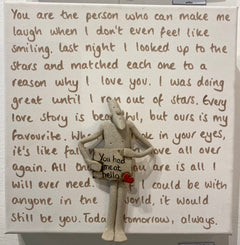 You are the person who can make me
laugh when I don't even feel like
smiling. last night I looked up to the
stars and matched each one to a
reason why I love you. I was doing
great until I out of stars. Every
love story is beautiful, but ours is my
favourite. When look in your eyes,
it's like over
again. All are is all I
will ever need. could be with
anyone in the world, it would
still be you. Today tomorrow, always.
You had
me at
hello